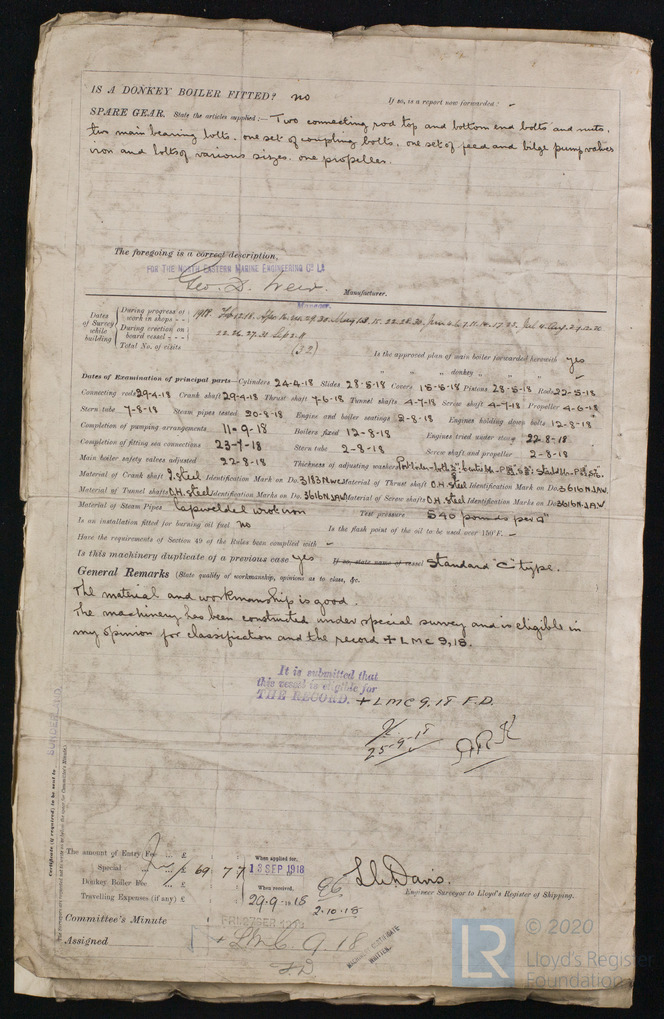 IS A DONKEY BOILER FITTED? no If so, is a report now forwarded: -
SPARE GEAR. State the articles supplied:— Two connecting rod top and bottom end bolts and nuts.
two main bearing bolts. one set of coupling bolts. one set of feed and bilge pump valves
iron and bolts of various sizes. one propeller.
The foregoing is a correct description,
FOR THE NORTH EASTERN MARINE ENGINEERING Co Ld
Geo. D. Weir Manufacturer.
Manager.
Dates of Survey while building
During progress of work in shops - - 1918
During erection on board vessel - - - 22. 26. 27. 31
Total No. of visits (32)
Is the approved plan of main boiler forwarded herewith yes
" " " donkey " " " -
Dates of Examination of principal parts—Cylinders 24-4-18 Slides 28-5-18 Covers 15-5-18 Pistons 28-5-18 Rods 22-5-18
Connecting rods 29-4-18 Crank shaft 29-4-18 Thrust shaft 7-6-18 Tunnel shafts 4-7-18 Screw shaft 4-7-18 Propeller 4-6-18
Stern tube 7-8-18 Steam pipes tested 20-8-18 Engine and boiler seatings 2-8-18 Engines holding down bolts 12-8-18
Completion of pumping arrangements 11-9-18 Boilers fixed 12-8-18 Engines tried under steam 22-8-18
Completion of fitting sea connections 23-7-18 Stern tube 2-8-18 Screw shaft and propeller 2-8-18
Main boiler safety valves adjusted 22-8-18 Thickness of adjusting washers
Material of Crank shaft I. Steel Identification Mark on Do. 3183 N.W.C. Material of Thrust shaft O.H. Steel Identification Mark on Do. 3616 N.J.A.W.
Material of Tunnel shafts O.H. Steel Identification Marks on Do. 3616 N.J.A.W. Material of Screw shafts O.H. Steel Identification Marks on Do. 3616 N.J.A.W
Material of Steam Pipes Lapwelded wrot iron Test pressure 540 pounds per □"
Is an installation fitted for burning oil fuel no Is the flash point of the oil to be used over 150°F. -
Have the requirements of Section 49 of the Rules been complied with -
Is this machinery duplicate of a previous case yes If so, state name of vessel Standard "C" type.
General Remarks (State quality of workmanship, opinions as to class, &c.
The material and workmanship is good.
The machinery has been constructed under special survey and is eligible in
my opinion for classification and the record + LMC 9,18.
It is submitted that
this vessel is eligible for
THE RECORD. + LMC 9.18 F.D.
25-9-18
SUNDERLAND
Certificate (if required) to be sent to
The amount of Entry Fee .. £
Special .. £ 69 7
Donkey Boiler Fee .. £
Travelling Expenses (if any) £
When applied for,
13 SEP 1918
When received,
29-9-1918
2.10.18
L. C. Davis.
Engineer Surveyor to Lloyd's Register of Shipping.
Committee's Minute
Assigned + LMC 9 18
F.D.
MACHINERY CERTIFICATE
WRITTEN.
© 2020
Lloyd's Register
Foundation
LR